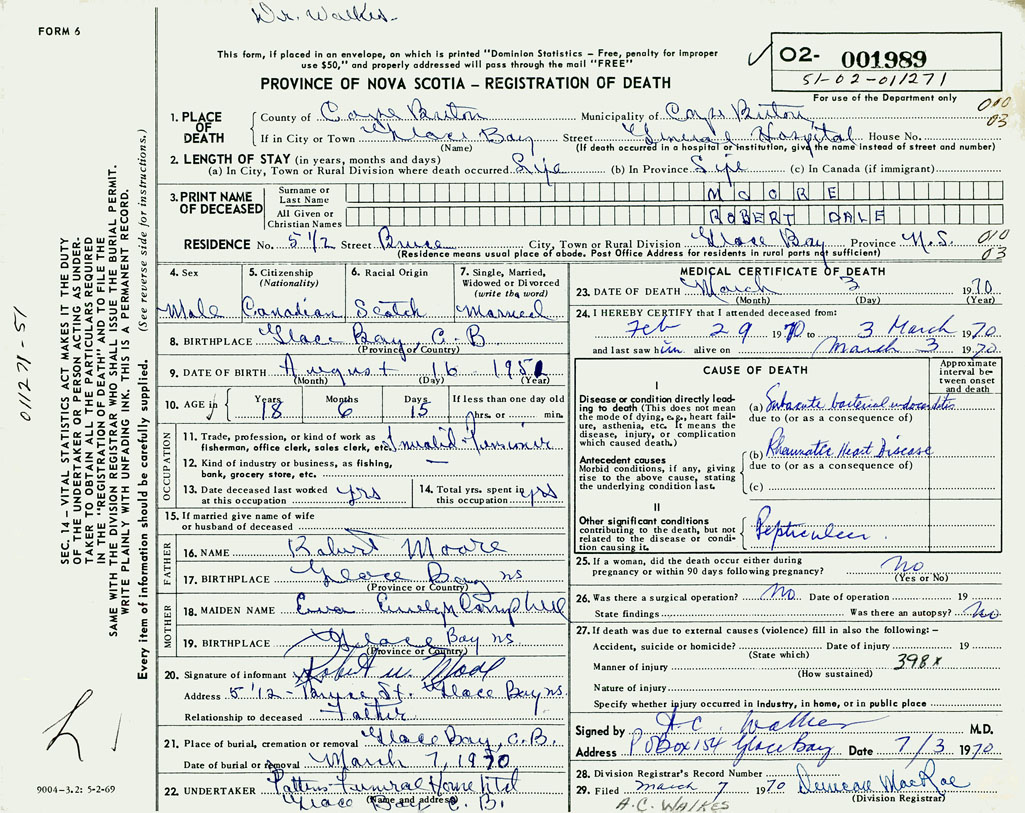 Dr. Walkes
FORM 6
This form, if placed in an envelope, on which is printed "Dominion Statistics – Free, penalty for improper
use $50," and properly addressed will pass through the mail "FREE"
PROVINCE OF NOVA SCOTIA – REGISTRATION OF DEATH
✓ O2- 001989
51-02-011271
For use of the Department only
010
03
1. PLACE OF DEATH
County of Cape Breton Municipality of Cape Breton
If in City or Town Glace Bay Street General Hospital House No.
(Name) (If death occurred in a hospital or institution, give the name instead of street and number)
2. LENGTH OF STAY (in years, months and days)
(a) In City, Town or Rural Division where death occurred Life (b) In Province Life (c) In Canada (if immigrant)
3. PRINT NAME OF DECEASED
Surname or Last Name MOORE
All Given or Christian Names ROBERT DALE
RESIDENCE No. 5 1/2 Street Bruce City, Town or Rural Division Glace Bay Province N.S. 010
03
(Residence means usual place of abode. Post Office Address for residents in rural parts not sufficient)
4. Sex
Male
5. Citizenship (Nationality)
Canadian
6. Racial Origin
Scotch
7. Single, Married, Widowed or Divorced (write the word)
Married
8. BIRTHPLACE Glace Bay, C.B
(Province or Country)
9. DATE OF BIRTH August 16 1951
(Month) (Day) (Year)
10. AGE in Years Months Days If less than one day old
18 6 15 hrs. or min.
OCCUPATION
11. Trade, profession, or kind of work as
fisherman, office clerk, sales clerk, etc. Invalid Pensioner
12. Kind of industry or business, as fishing,
bank, grocery store, etc. —
13. Date deceased last worked at this occupation yrs
14. Total yrs. spent in this occupation yrs
15. If married give name of wife
or husband of deceased
FATHER
16. NAME Robert Moore
17. BIRTHPLACE Glace Bay ns
(Province or Country)
MOTHER
18. MAIDEN NAME Emelyn Campbell
19. BIRTHPLACE Glace Bay ns
(Province or Country)
20. Signature of informant Robert W. Moore
Address 5 1/2 - Bruce St. Glace Bay ns
Relationship to deceased Father
21. Place of burial, cremation or removal Glace Bay, C.B.
Date of burial or removal March 7, 1970
22. UNDERTAKER Pattens Funeral Home Ltd
Glace Bay C.B.
(Name and address)
MEDICAL CERTIFICATE OF DEATH
23. DATE OF DEATH March 3 1970
(Month) (Day) (Year)
24. I HEREBY CERTIFY that I attended deceased from:
Feb 29 1970 to 3 March 1970
and last saw him alive on March 3 1970
CAUSE OF DEATH
Approximate interval between onset and death
I
Disease or condition directly leading to death (This does not mean the mode of dying, e.g., heart failure, asthenia, etc. It means the disease, injury, or complication which caused death.)
(a) Subacute bacterial endocarditis
due to (or as a consequence of)
Antecedent causes
Morbid conditions, if any, giving rise to the above cause, stating the underlying condition last.
(b) Rheumatic Heart Disease
due to (or as a consequence of)
(c)
II
Other significant conditions
contributing to the death, but not related to the disease or condition causing it.
Peptic ulcer.
25. If a woman, did the death occur either during
pregnancy or within 90 days following pregnancy? No
(Yes or No)
26. Was there a surgical operation? No Date of operation 19
State findings Was there an autopsy? No
27. If death was due to external causes (violence) fill in also the following: –
Accident, suicide or homicide? Date of injury 19
(State which)
398x
Manner of injury
(How sustained)
Nature of injury
Specify whether injury occurred in Industry, in home, or in public place
Signed by A.C. Walkes M.D.
Address P O Box 154 Glace Bay Date 7/3 1970
28. Division Registrar's Record Number
29. Filed March 7 1970 Duncan MacRae
(Division Registrar)
A.C. WALKES
SEC. 14 – VITAL STATISTICS ACT MAKES IT THE DUTY
OF THE UNDERTAKER OR PERSON ACTING AS UNDER-
TAKER TO OBTAIN ALL THE PARTICULARS REQUIRED
IN THE "REGISTRATION OF DEATH" AND TO FILE THE
SAME WITH THE DIVISION REGISTRAR WHO SHALL ISSUE THE BURIAL PERMIT.
WRITE PLAINLY WITH UNFADING INK. THIS IS A PERMANENT RECORD.
Every item of information should be carefully supplied. (See reverse side for instructions.)
011271-51
9004-3.2: 5-2-69